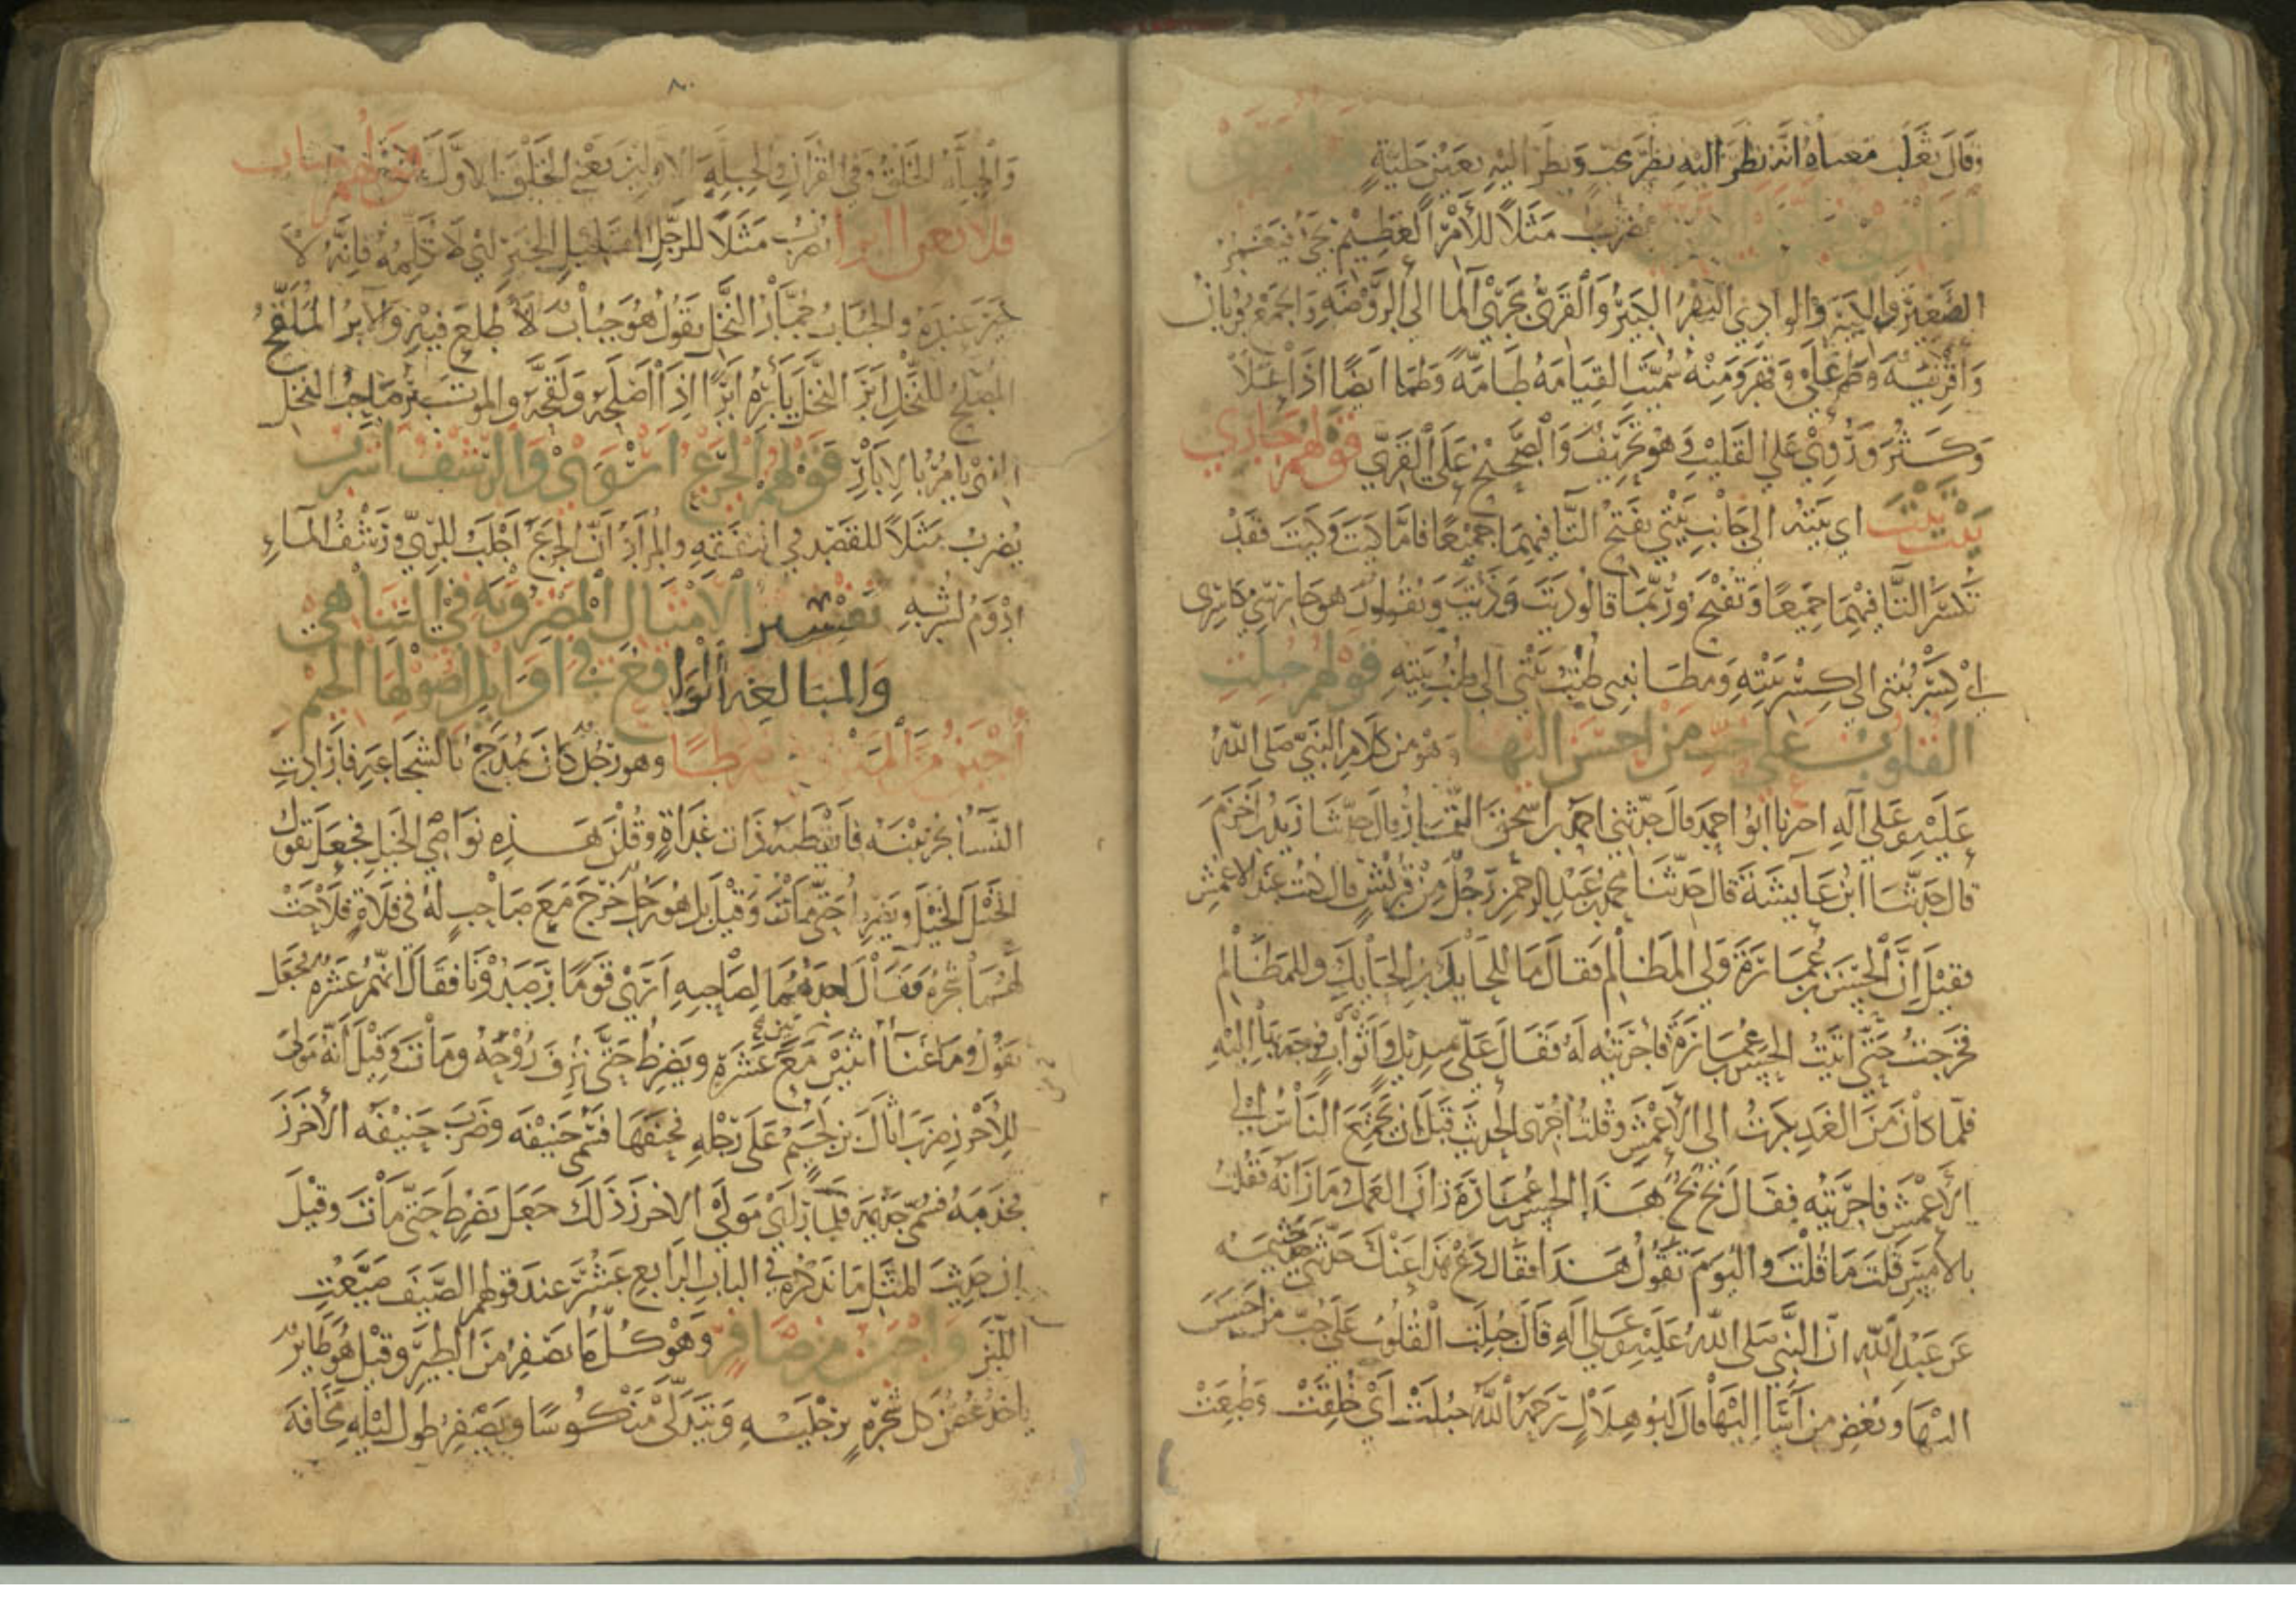 وَقَالَ ثَعْلَب مَعناهُ انه نَظَرَ اليهِ نظرَ محب وَنظرَ اليهِ بعَين جَليّةٍ
يُضرَبُ مَثَلاً لِلأمْرِ العَظِيْم يَجيُ فيَغمُر
الصَّغِيْرَ وَالكبيرَ وَالوادِي النهرُ الكَبيرُ وَالقَرِيُّ مَجرَى الما الى الرَّوْضَهِ وَالجمعُ قُريانٌ
وَاقْرِيَهٌ وَطَمَّ عَلَى وَقهَرَ وَمِنْهُ سُميَّتِ القِيَامَهُ طَامَّةً وَطمَا ايضًا اذَا عَلاَ
وَكَثُرَ وَرُوِيَ عَلى القَليْبِ وَهْوَ تَحرِيفٌ وَالصَّحيْحُ عَلَى القَرِيِّ قولهم جَارِي
بَيْتَ بَيْتَ اي بَيتُه الى جَانِبِ بَيْتي بفَتح التَّا فيهمَا جَمِيْعًا فَامَّا كَيتَ وَكَيتَ فَقدْ
تكسَرُ التَّا فيْهِمَا جَمِيعًا وَتُفْتحُ وَرُبَّمَا قالُو ذَيتَ وَذَيتَ وَيقُولونَ هوَ جارى مكاسِرى
اىْ كِسْرُ بَيْتى الى كِسْرِ بَيْتِهِ وَمطَانبى طُنُبُ بَيْتي الى طنُبِ بَيتِهِ قولهم جُبِلتِ
القُلوبُ عَلى حُبِّ مَنْ احسَنَ اليْها وَهْوَ من كَلامِ النَّبيِّ صَلى اللهُ
عَليْهِ وعَلى آلهِ اخبرنا ابُو احمدَ قالَ حدَّثنى احمد بن اسحقَ التَّمَّارُ قالَ حدَّثنا زيد بن اخزمَ
قال حَدَّثنَا ابنُ عَايشةَ قال حَدَّثنَا محمدُ بنُ عَبْدِ الرحمنِ رَجُلٌ مِنْ قُرَيْشٍ قال كنت عندَ الاعمشِ
فقيْلَ اِنَّ الحَسَنَ بنَ عُمَارَةَ وَلي المَظالِمَ فقَالَ مَا للحَايكِ بن الحايكِ وللمَظالِم
فخَرَجتُ حَتَّى اتيْتُ الحسَن بن عُمَارَةَ فاخبَرْتُه لَهُ فَقَالَ عَلَيَّ بمِنْدِيلٍ وَاثْوَابٍ فوَجّه بهَا اليْهِ
فلمّا كانَ مِنَ الغَدِ بكرتُ الى الاَعْمَشِ وقُلتُ اُجْرِى الحديثَ قبلَ ان يجْتمِعَ النَّاسُ الى
الاَعْمَشِ فَاجرَيتُه فقَالَ بَخْ بَخْ هَذَا الحسَن بن عُمَارَةَ زَانَ العَملُ وَمَا زَانَهُ فقُلتُ
بالاَمْسِ قُلتَ مَا قُلْتَ وَاليَومَ تَقُولُ هَذَا فقالَ دَعْ هَذا عَنْكَ حَدَّثني خَيثمَه
عَن عَبْدِ اللهِ انّ النَّبِيَّ صَلى اللهُ عَليْهِ وعَلى آلهِ قَالَ جُبِلَتِ القُلُوبُ عَلَى حُبِّ من احْسَنَ
اليْهَا وَبُغضِ من اَسَا اِليْهَا قالَ ابُو هِلاَلٍ رَحِمَهُ اللهُ جُبلَتْ اَيْ خُلِقَتْ وَطُبِعَتْ
٨٠
وَالجِبِلَّةُ الخَلْقُ وَفي القرآنِ وَالجبِلَّةَ الاَوّلينَ يَعْني الخَلْقَ الاَوَّلَ قولهم جُباب
فلا تعنَّ ابرا يُضرَبُ مَثَلاً للرَّجُلِ القليلِ الخيَرِ اىْ لا تُكَلِّمهُ فاِنَّهُ لاَ
خَيرَ عِندَهُ والجُبَابُ جُمَّارُ النَّخْلِ يَقُولُ هُوَ جُبَابٌ لاَ طَلعَ فيْهِ وَالابرُ المُلَقِّحُ
المُصْلِحُ للنَّخْلِ اَبَرَ النَّخلَ يَأبُرُهُ اَبْرًا اِذَا اَصْلَحَهُ وَلَقحَّه وَالموتبرُ صَاحِبُ النخلِ
الذي يامُرُ بالاِبَارِ قولهم الجَرْعُ ارْوَى وَالرَّشفُ اشرَبُ
يُضرَبُ مَثَلاً للقَصْدِ في النَفقَهِ والمُرَادُ اَنَّ الجَرْعَ اَجْلَبُ للرِّيّ وَرَشْفُ المآءِ
اَدْوَمُ لشُرْبهِ تفسير الامثال المضرُوبَهِ في التنَاهِي
وَالمبَالغهِ الوَاقِعَةِ في اوَايل اصُولهَا الجِيْم
أجْبَنُ مِنَ المَنْزُوفِ ضرطًا وهو رَجُلٌ كَانَ يُمْدَحُ بالشجَاعَةِ فاَرَادَتِ
النِّسَآ تجربَتَه فَايقَظنه ذَات غدَاةٍ وقُلنَ هَذِهِ نوَاصِي الخَيلِ فجعَلَ يَقولُ
الخَيْلَ الخَيْلَ وَيضرِطُ حَتَّى مَاتَ وَقِيْلَ بل هُوَ رَجُلٌ خَرَجَ مَعَ صَاحِبٍ لَهُ في فَلاَةٍ فَلاَحَتْ
لهُمَا شَجَرَهٌ فَقَالَ احَدهُمَا لِصَاحِبِهِ اَرَى قَومًا رَصَدُوْنَا فقَالَ انّما هىَ عُشَرَهٌ فجَعَلَ
يقُولُ وَمَا غنَآ اثنَيْن مَعَ عَشَرَةٍ ويَضرِطُ حَتَّى نُزِفَ رُوْحُهُ وَمَاتَ وَقِيْلَ انَّهُ مَولىً
للاَحْرَزِ ضرَبَ اثالَ بن لُجَيمٍ عَلَى رِجْلِهِ فحنَفَهَا فسُمِّي حَنِيْفَه وَضَرَبَ حَنِيْفَه الاحْرَزَ
فجَذَمَهُ فسُمّيَ جَذيمَه فلمَّا رَاَى مَولَى الاحْرَزِ ذَلكَ جَعَلَ يَضْرطُ حَتَّى مَاتَ وقيْلَ
ان حَديثَ المثَلِ مَا نَذكُرُه في البابِ الرابعِ عَشَرَ عندَ قولهم الصَّيفَ ضَيَّعْتِ
اللَّبَنَ وَاجْبَنُ مِن صَافِرٍ وَهْوَ كُلُّ مَا يَصْفِرُ مِنَ الطيرِ وَقيْلَ هُوَ طَايرٌ
ياخُذُ غُصْنَ كل شَجَرَةٍ برِجْلَيْهِ وَيَتَدَلّى مَنْكُوسًا وَيَصْفِرُ طولَ ليْلهِ مخَافةَ